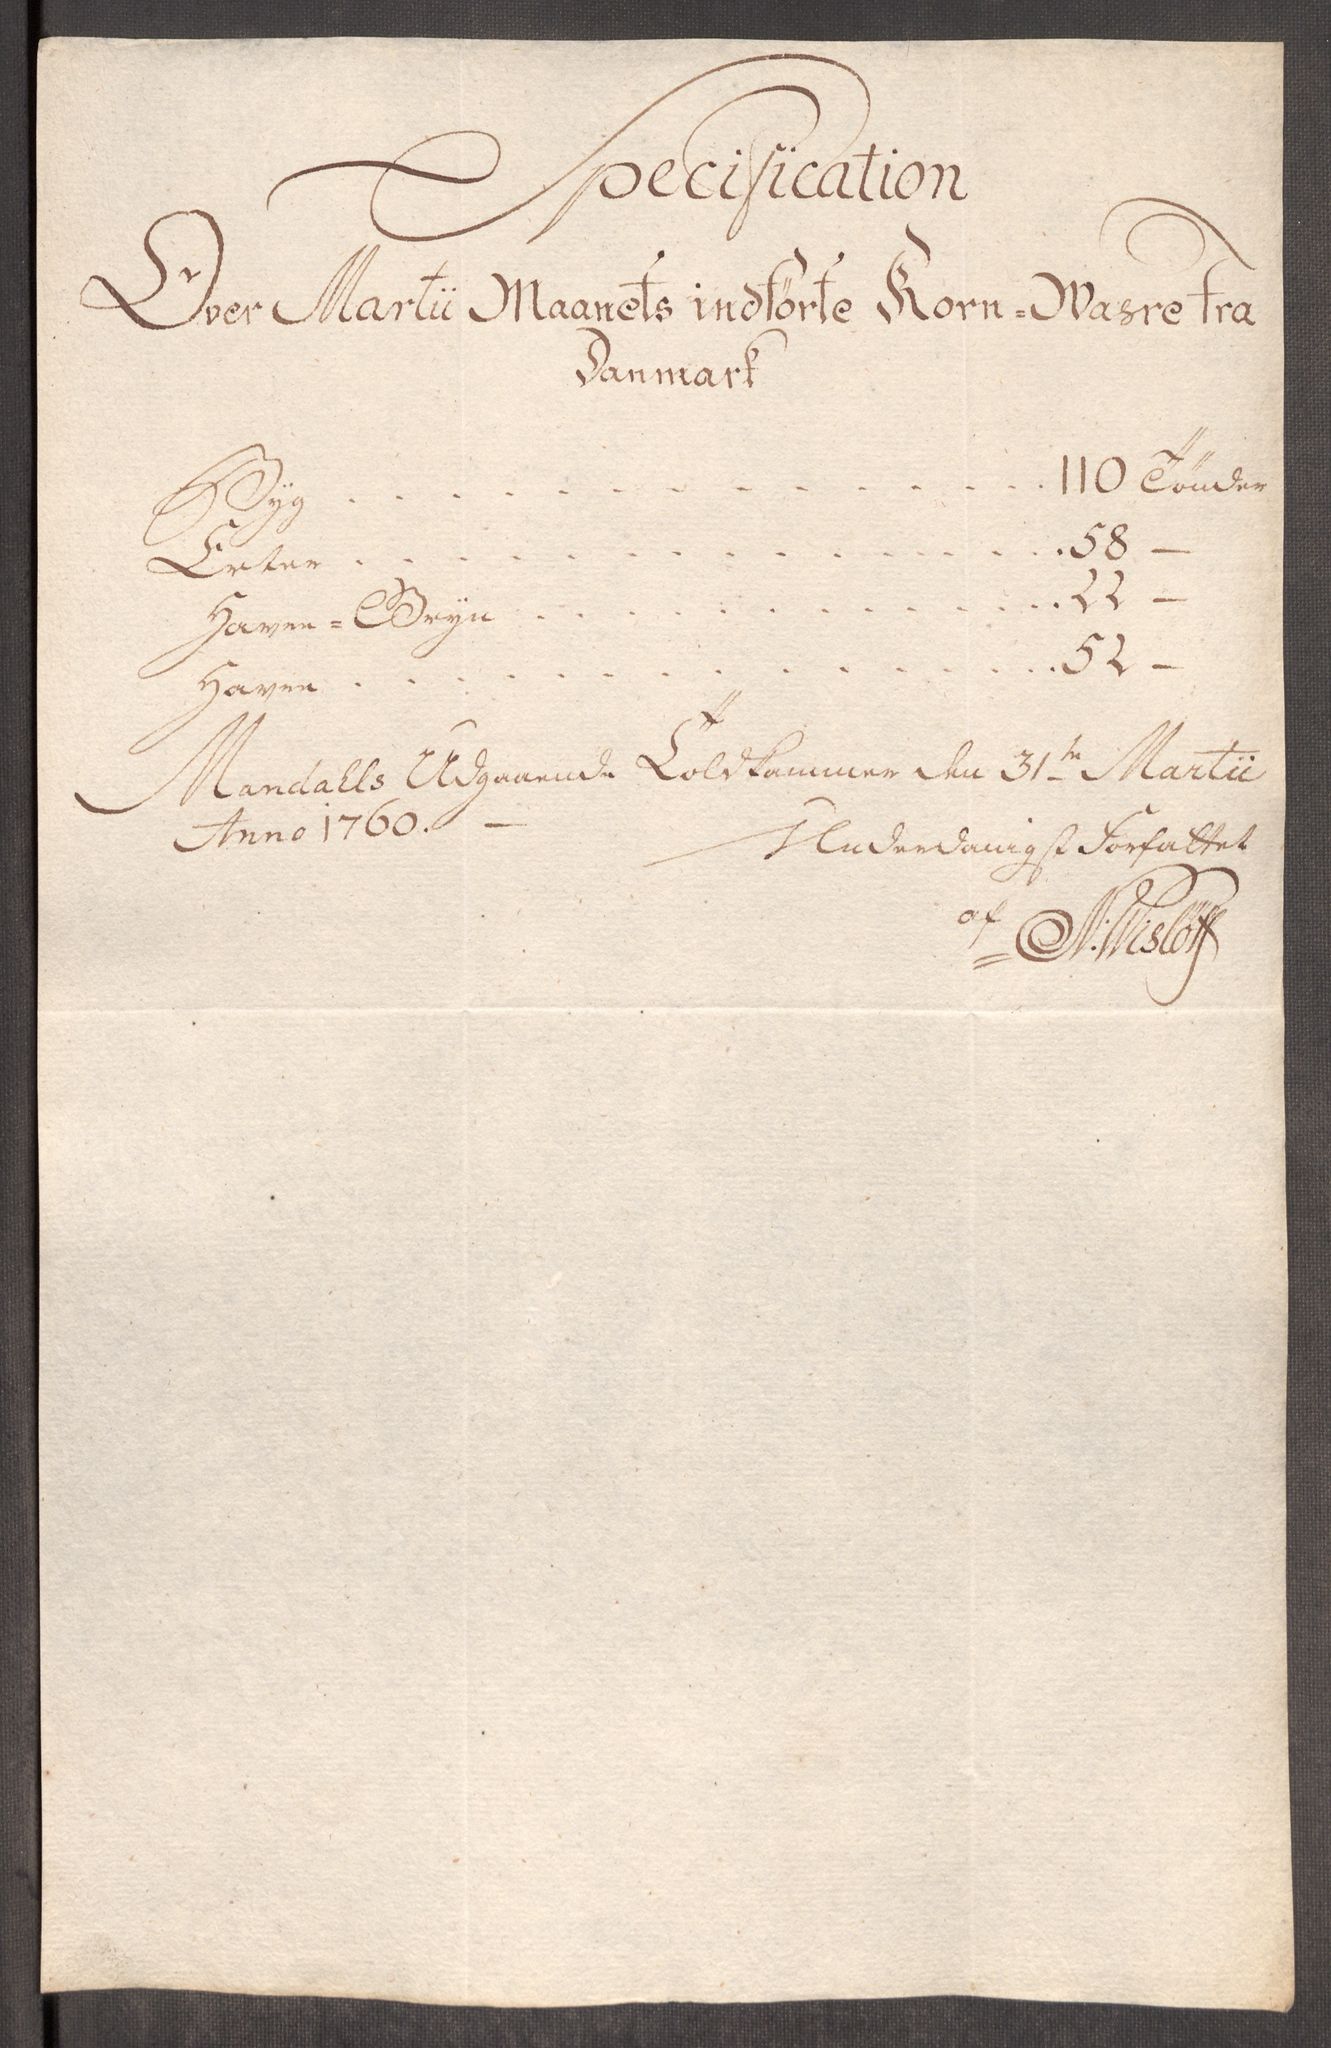 Specification
Over Martii Maanets indförte Korn=Wahre fra
Danmark
Byg . . . . . . . . . . . . . . . . 110 Tönder
Erter . . . . . . . . . . . . . . . . 58 —
Haver=Gryn . . . . . . . . . . . . . 22 —
Haver . . . . . . . . . . . . . . . . 52 —
Mandahls Udgaaende Toldkammer den 31te Martii
Anno 1760. —
Underdanigst Forfattet
af N: Wislöff